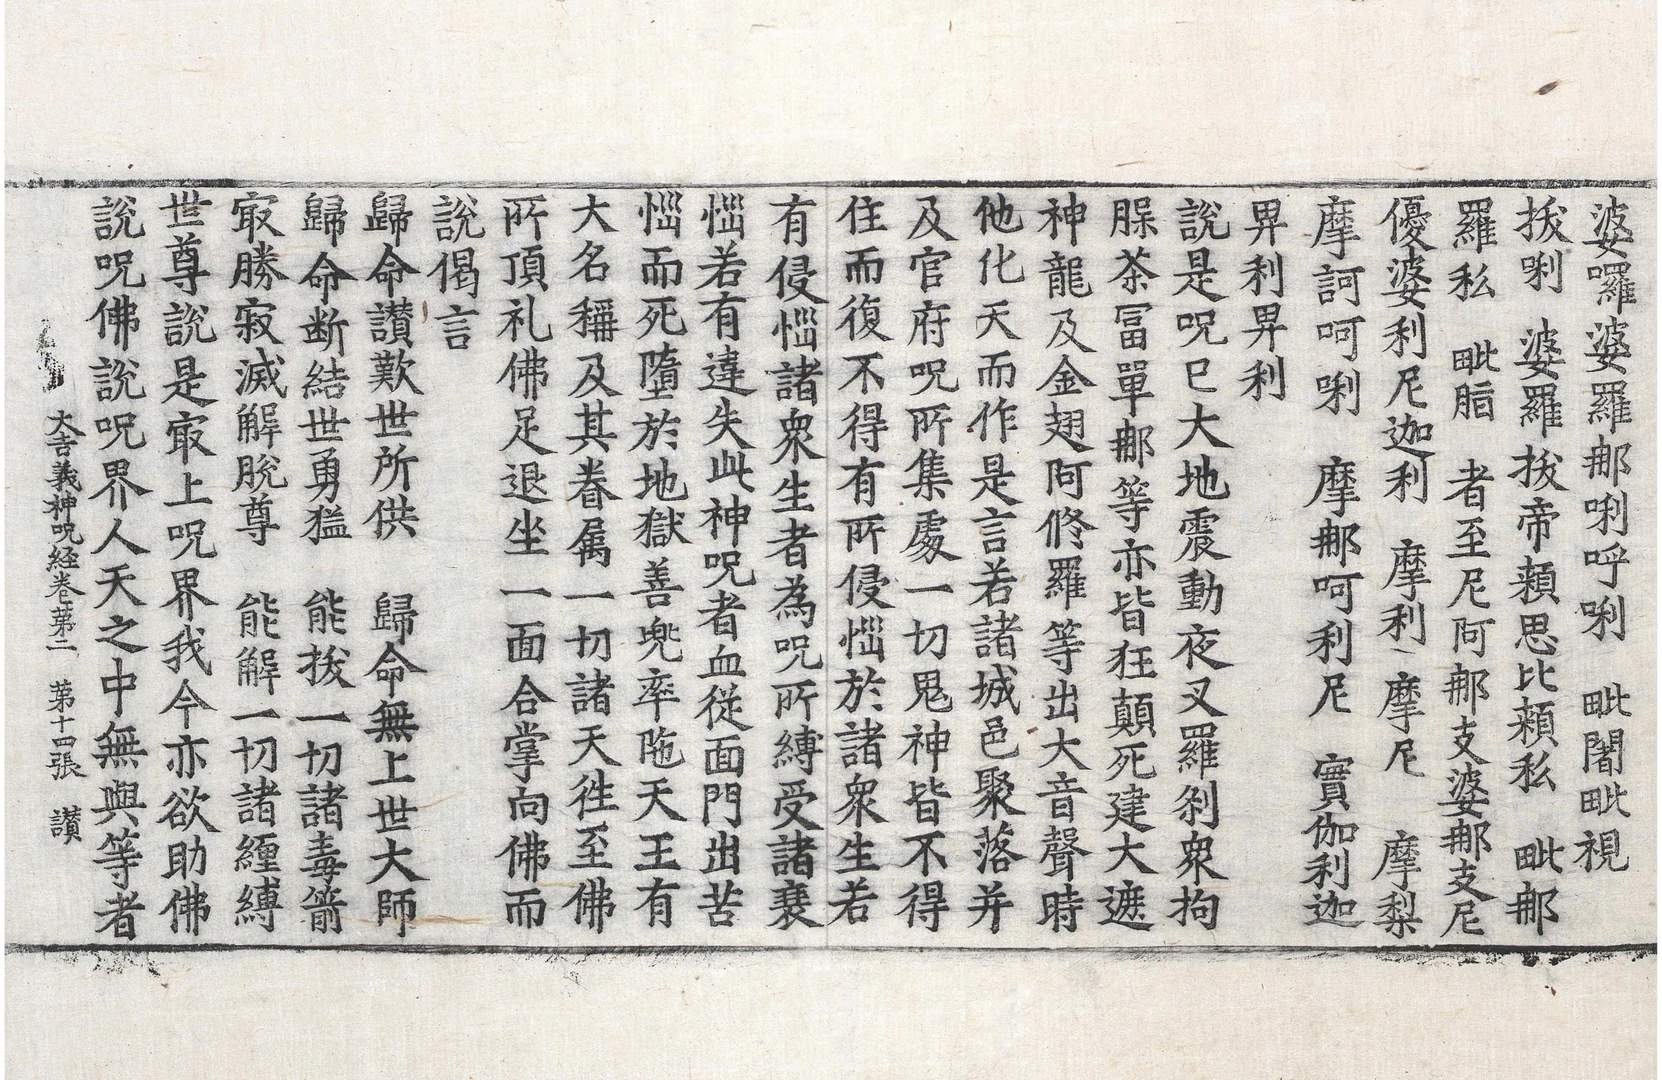 婆囉婆羅那唎呼唎　毗闍毗視
拔唎　婆羅拔帝頼思比頼私　毗那
羅私　毗脂　者至尼阿那支婆那支尼
優婆利尼迦利　摩利　摩尼　摩梨
摩訶呵唎　摩那呵利尼　實伽利迦
畀利畀利
說是呪已大地震動夜叉羅剎衆拘
腂茶冨單那等亦皆狂顛死建大遮
神龍及金翅阿脩羅等出大音聲時
他化天而作是言若諸城邑聚落并
及官府呪所集處一切鬼神皆不得
住而復不得有所侵惱於諸衆生若
有侵惱諸衆生者為呪所縛受諸衰
惱若有違失此神呪者血從面門出苦
惱而死墮於地獄善兜率陁天王有
大名稱及其眷属一切諸天徃至佛
所頂礼佛足退坐一面合掌向佛而
說偈言
歸命讃歎世所供　歸命無上世大師
歸命断結世勇猛　能拔一切諸毒箭
㝡勝寂滅解脫尊　能解一切諸纏縛
世尊說是㝡上呪界我今亦欲助佛
說呪佛說呪界人天之中無與等者
大吉義神呪経卷苐二　苐十四張　讃